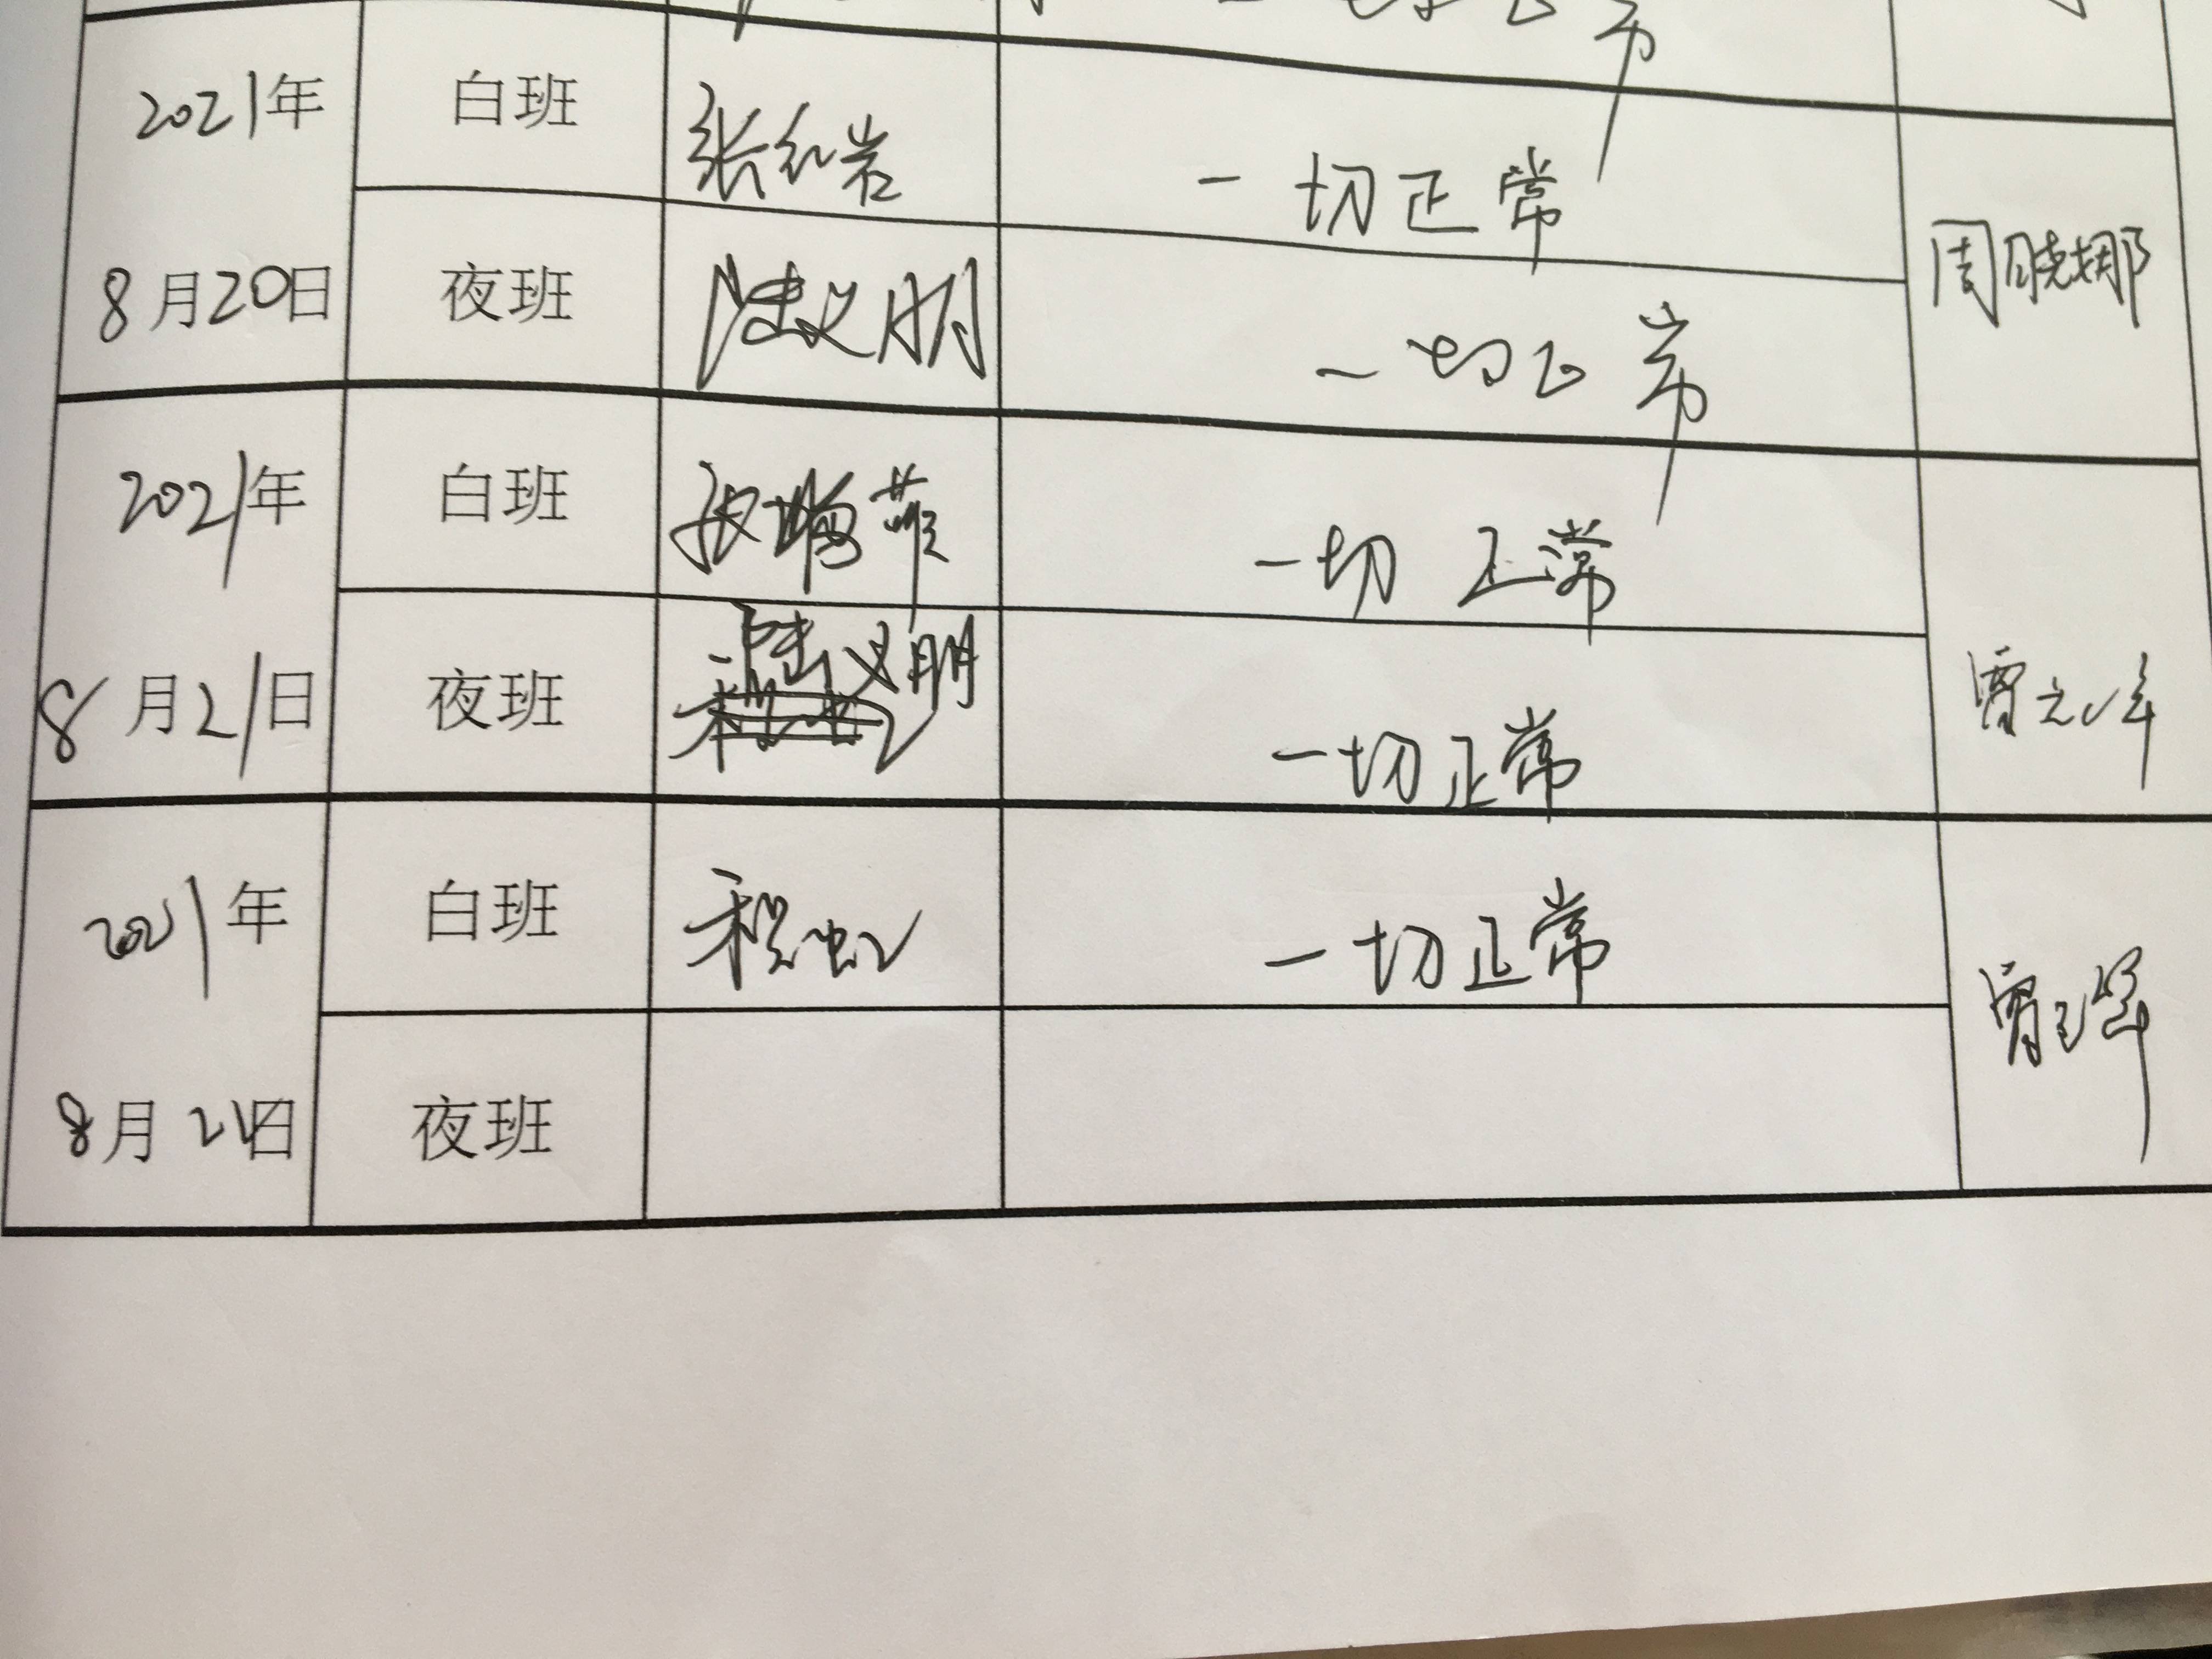 2021年 白班 张红岩 一切正常
8月20日 夜班 陆义明 一切正常 周晓娜
2021年 白班 一切正常
8月21日 夜班 陆义明 一切正常
2021年 白班 程虹 一切正常
8月 日 夜班